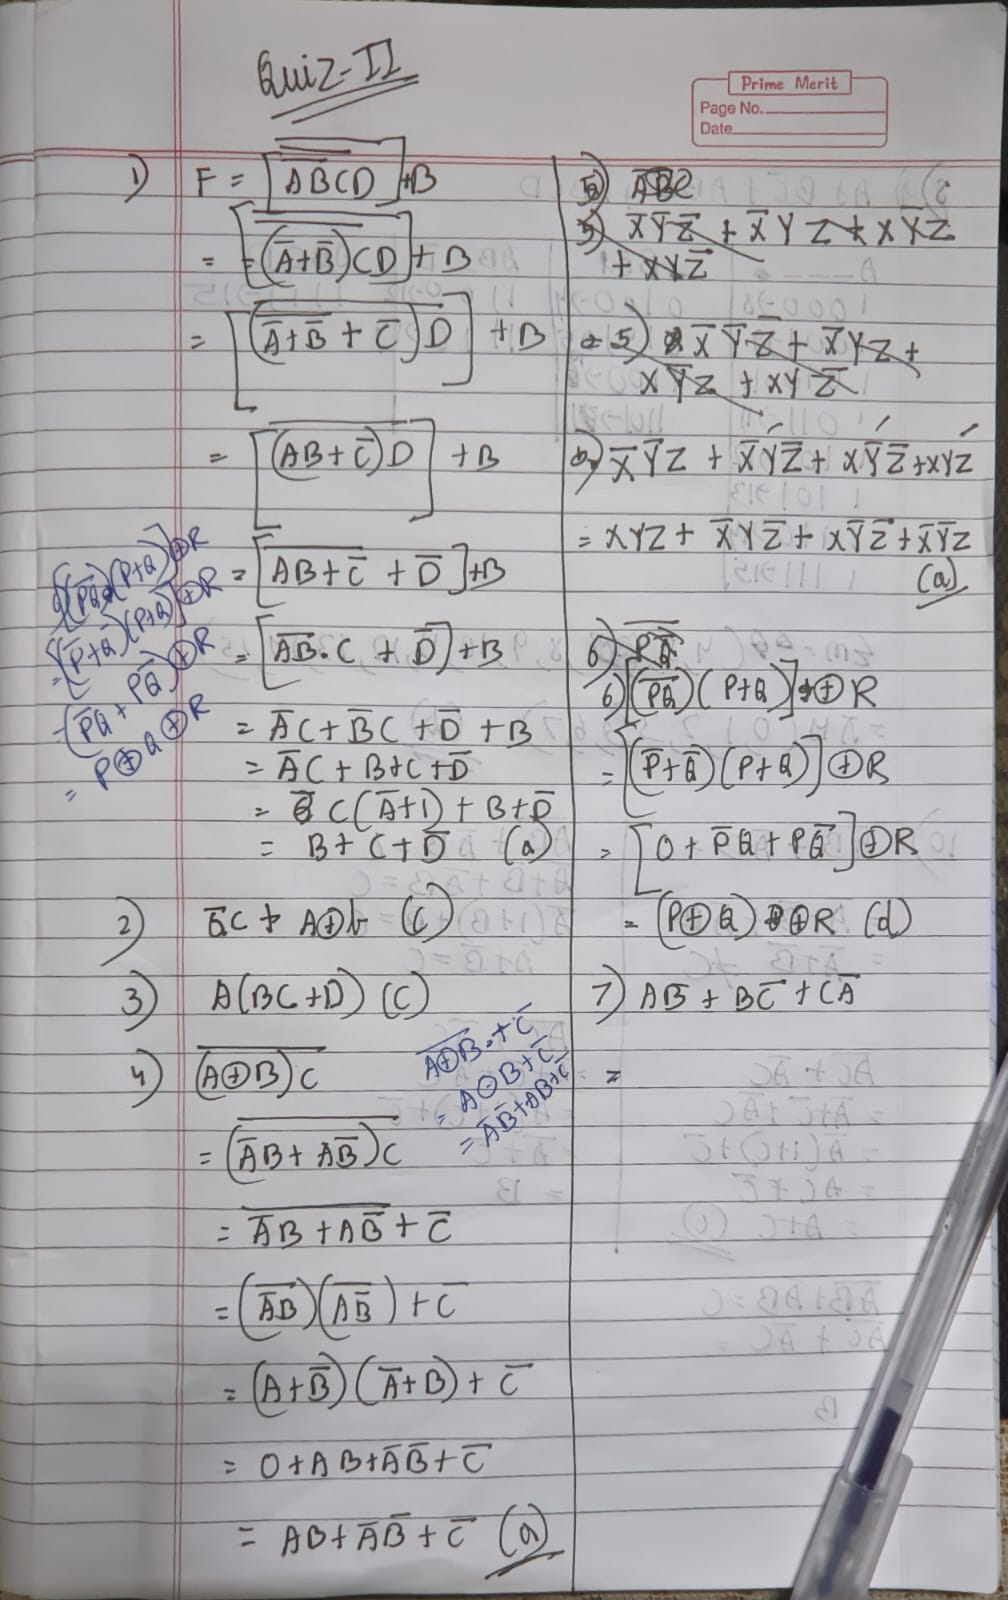 Quiz-II
Prime Merit
Page No.
Date
1) F = [A̅B̅CD] + B
= [(A̅+B̅)CD] + B
= [(A̅+B̅ + C̅)D] + B
= [(AB+C̅)D] + B
= [AB+C̅ + D̅] + B
= [A̅B̅·C + D̅] + B
= A̅C + B̅C + D̅ + B
= A̅C + B + C + D̅
= C(A̅+1) + B + D̅
= B + C + D̅ (a)
2) B̅C + A⊕b (C)
3) A(BC+D) (C)
4) (A⊕B)C
= (A̅B + AB̅)C
= A̅B + AB̅ + C̅
= (A̅B)(AB̅) + C̅
= (A+B̅)(A̅+B) + C̅
= 0 + AB + A̅B̅ + C̅
= AB + A̅B̅ + C̅ (a)
A⊕B + C̅
= A⊙B + C̅
= A̅B̅ + AB + C̅
[(PQ)(P+Q)]⊕R
= [(P̅+Q̅)(P+Q)]⊕R
= (P̅Q + PQ̅)⊕R
= P⊕Q⊕R
5) X̅Y̅Z̅ + X̅YZ + XY̅Z
+ XYZ̅
5) X̅Y̅Z̅ + X̅YZ +
XY̅Z + XYZ̅
X̅Y̅Z + X̅YZ̅ + XY̅Z̅ + XYZ
= XYZ + X̅YZ̅ + XY̅Z̅ + X̅Y̅Z
(a)
6) PQ̅
6) [(PQ)(P+Q)] ⊕ R
= [(P̅+Q̅)(P+Q)]⊕R
= [0 + P̅Q + PQ̅]⊕R
= (P⊕Q) ⊕R (d)
7) AB̅ + BC̅ + CA̅
=